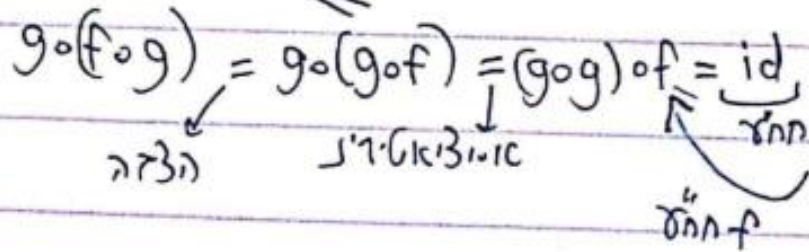 g∘(f∘g) = g∘(g∘f) = (g∘g)∘f = id
הצדה אסוציאטיביות חח"ע
f חח"ע